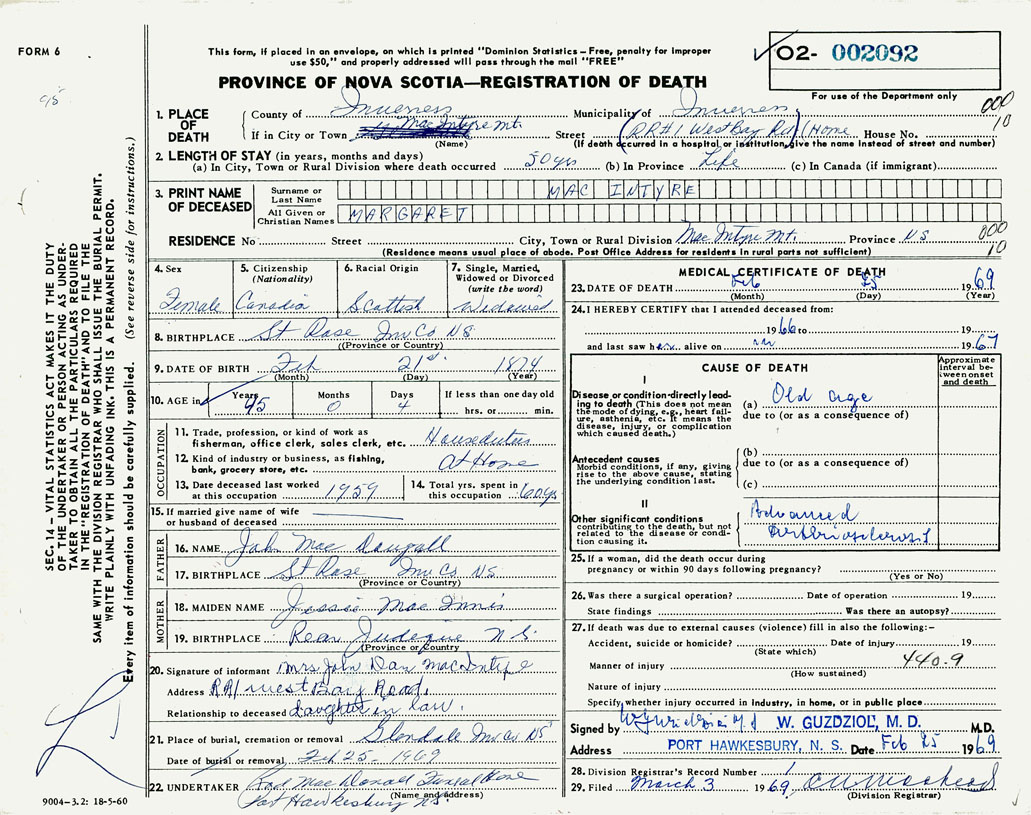 FORM 6
This form, if placed in an envelope, on which is printed "Dominion Statistics – Free, penalty for improper
use $50," and properly addressed will pass through the mail "FREE"
PROVINCE OF NOVA SCOTIA—REGISTRATION OF DEATH
02- 002092
For use of the Department only
1. PLACE OF DEATH
County of Inverness Municipality of Inverness 000
If in City or Town MacIntyre Mt. Street (RR#1 West Bay Rd) (Home House No. 10
(Name) (If death occurred in a hospital or institution, give the name instead of street and number)
2. LENGTH OF STAY (in years, months and days)
(a) In City, Town or Rural Division where death occurred 50 yrs (b) In Province Life (c) In Canada (if immigrant)
3. PRINT NAME OF DECEASED
Surname or Last Name MAC INTYRE
All Given or Christian Names MARGARET
RESIDENCE No Street City, Town or Rural Division MacIntyre Mt. Province NS 000
10
(Residence means usual place of abode. Post Office Address for residents in rural parts not sufficient)
4. Sex Female
5. Citizenship (Nationality) Canadia
6. Racial Origin Scottish
7. Single, Married, Widowed or Divorced (write the word) Widowed
8. BIRTHPLACE St Rose Inv Co NS
(Province or Country)
9. DATE OF BIRTH Feb 21st. 1874
(Month) (Day) (Year)
10. AGE in Years 95 Months 0 Days 4 If less than one day old
hrs. or min.
OCCUPATION
11. Trade, profession, or kind of work as
fisherman, office clerk, sales clerk, etc.
12. Kind of industry or business, as fishing,
bank, grocery store, etc. At Home
13. Date deceased last worked
at this occupation 1959
14. Total yrs. spent in
this occupation 60 yrs
15. If married give name of wife
or husband of deceased
FATHER
16. NAME John Mac Dougall
17. BIRTHPLACE St Rose Inv Co NS
(Province or Country)
MOTHER
18. MAIDEN NAME Jessie Mac Innis
19. BIRTHPLACE Rear Judique N.S.
(Province or Country)
20. Signature of informant Mrs John Dan MacIntyre
Address RR1 West Bay Road.
Relationship to deceased Daughter in law.
21. Place of burial, cremation or removal Glendale Inv Co NS
Date of burial or removal Feb 25 - 1969
22. UNDERTAKER Rod MacDonald Funeral Home
Port Hawkesbury NS.
(Name and address)
9004–3.2: 18-5-60
MEDICAL CERTIFICATE OF DEATH
23. DATE OF DEATH Feb 25 1969
(Month) (Day) (Year)
24. I HEREBY CERTIFY that I attended deceased from:
1966 to 19
and last saw h alive on 1967
CAUSE OF DEATH
Approximate interval between onset and death
I
Disease or condition directly leading to death (This does not mean the mode of dying, e.g., heart failure, asthenia, etc. It means the disease, injury, or complication which caused death.)
(a) Old age
due to (or as a consequence of)
Antecedent causes
Morbid conditions, if any, giving rise to the above cause, stating the underlying condition last.
(b)
due to (or as a consequence of)
(c)
II
Other significant conditions
contributing to the death, but not related to the disease or condition causing it.
Advanced
25. If a woman, did the death occur during
pregnancy or within 90 days following pregnancy?
(Yes or No)
26. Was there a surgical operation? Date of operation 19
State findings Was there an autopsy?
27. If death was due to external causes (violence) fill in also the following:–
Accident, suicide or homicide? Date of injury 19
(State which)
Manner of injury 440.9
(How sustained)
Nature of injury
Specify whether injury occurred in industry, in home, or in public place
Signed by W. GUZDZIOL, M. D. M.D.
Address PORT HAWKESBURY, N. S. Date Feb 25 1969
28. Division Registrar's Record Number 1
29. Filed March 3 1969
(Division Registrar)
SEC. 14 – VITAL STATISTICS ACT MAKES IT THE DUTY
OF THE UNDERTAKER OR PERSON ACTING AS UNDER-
TAKER TO OBTAIN ALL THE PARTICULARS REQUIRED
IN THE "REGISTRATION OF DEATH" AND TO FILE THE
SAME WITH THE DIVISION REGISTRAR WHO SHALL ISSUE THE BURIAL PERMIT.
WRITE PLAINLY WITH UNFADING INK. THIS IS A PERMANENT RECORD.
Every item of information should be carefully supplied. (See reverse side for instructions.)